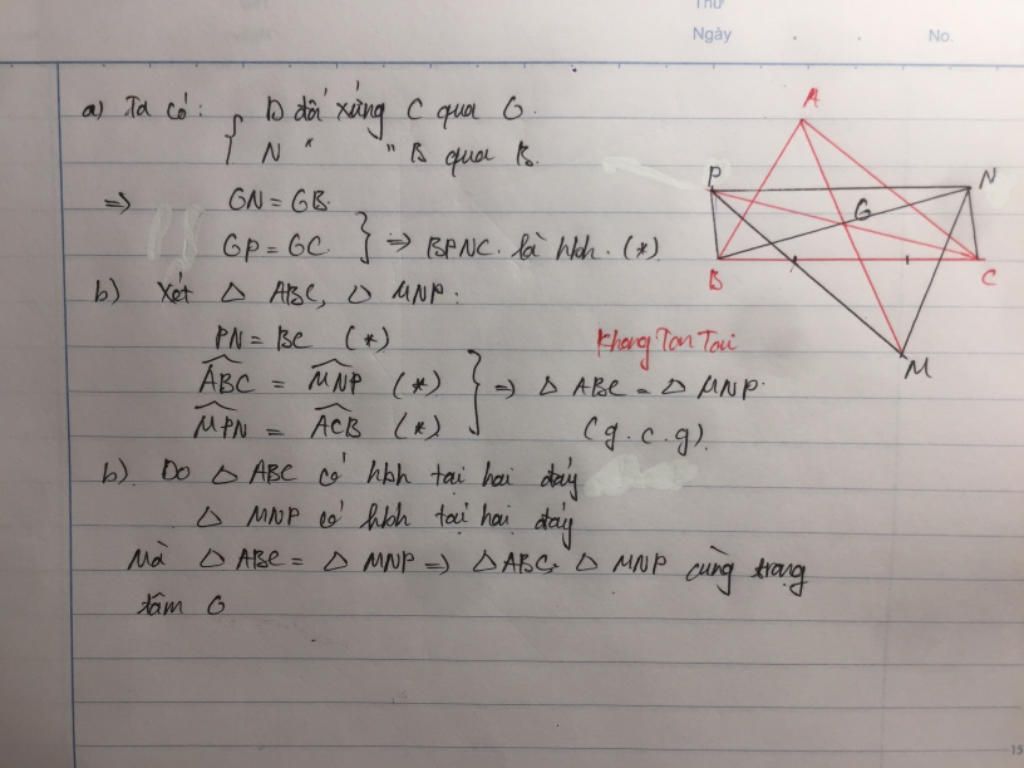 Thứ
Ngày . . No.
a) Ta có: { D đối xứng C qua G.
N " " B qua B.
=> GN = GB.
GP = GC. } => BPNC. là hbh. (*)
b) Xét △ ABC, △ MNP:
PN = BC (*)
ABC = MNP (*) } => △ ABC = △ MNP.
MPN = ACB (*) (g.c.g).
b). Do △ ABC có hbh tại hai đáy
△ MNP có hbh tại hai đáy
Mà △ ABC = △ MNP => △ABC, △ MNP cùng trọng
tâm G
A
P
N
G
B
C
Khong Ton Tai
M
15